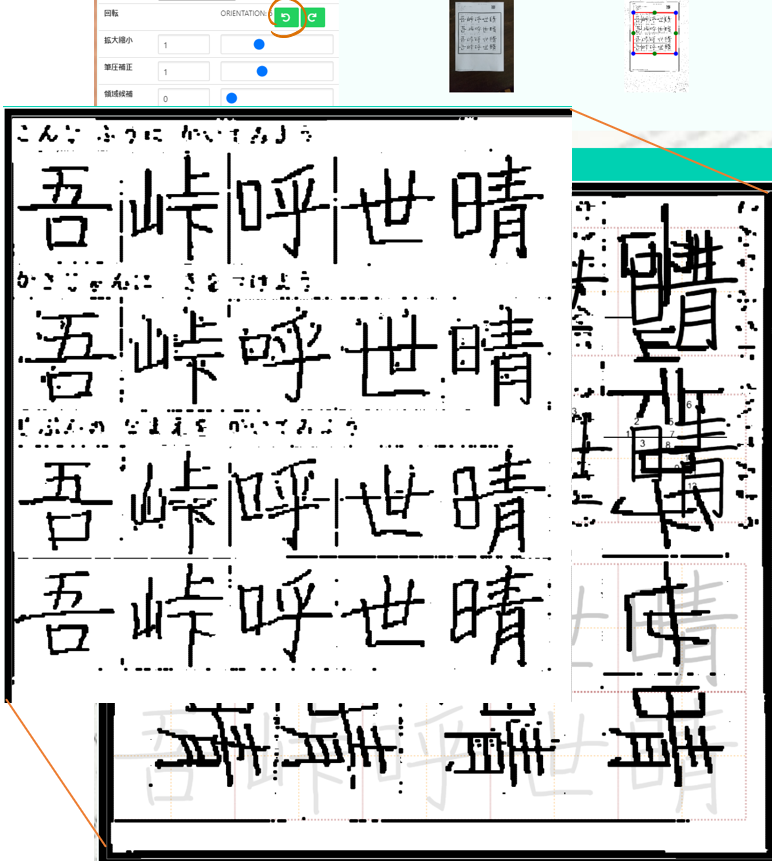 回転 ORIENTATION:
拡大縮小 1
筆圧補正 1
領域候補 0
こんな ふうに かいてみよう
吾 峠 呼 世 晴
かきじゅんに きをつけよう
吾 峠 呼 世 晴
じぶんの なまえを かいてみよう
吾 峠 呼 世 晴
吾 峠 呼 世 晴
晴
晴
世 晴
吾 峠 呼 世 晴